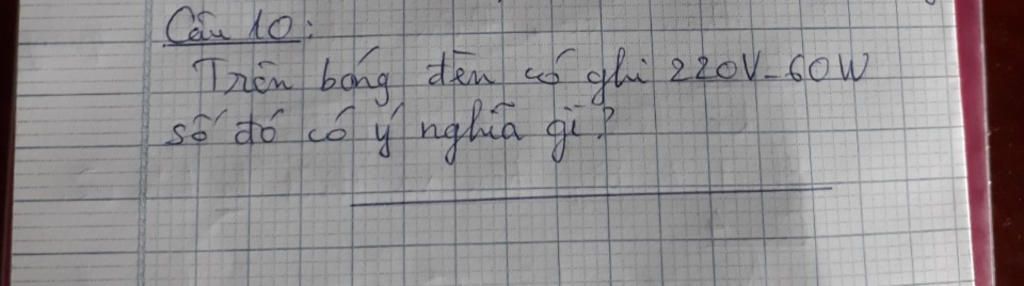 Câu 10:
Trên bóng đèn có ghi 220V-60W
số đó có ý nghĩa gì?